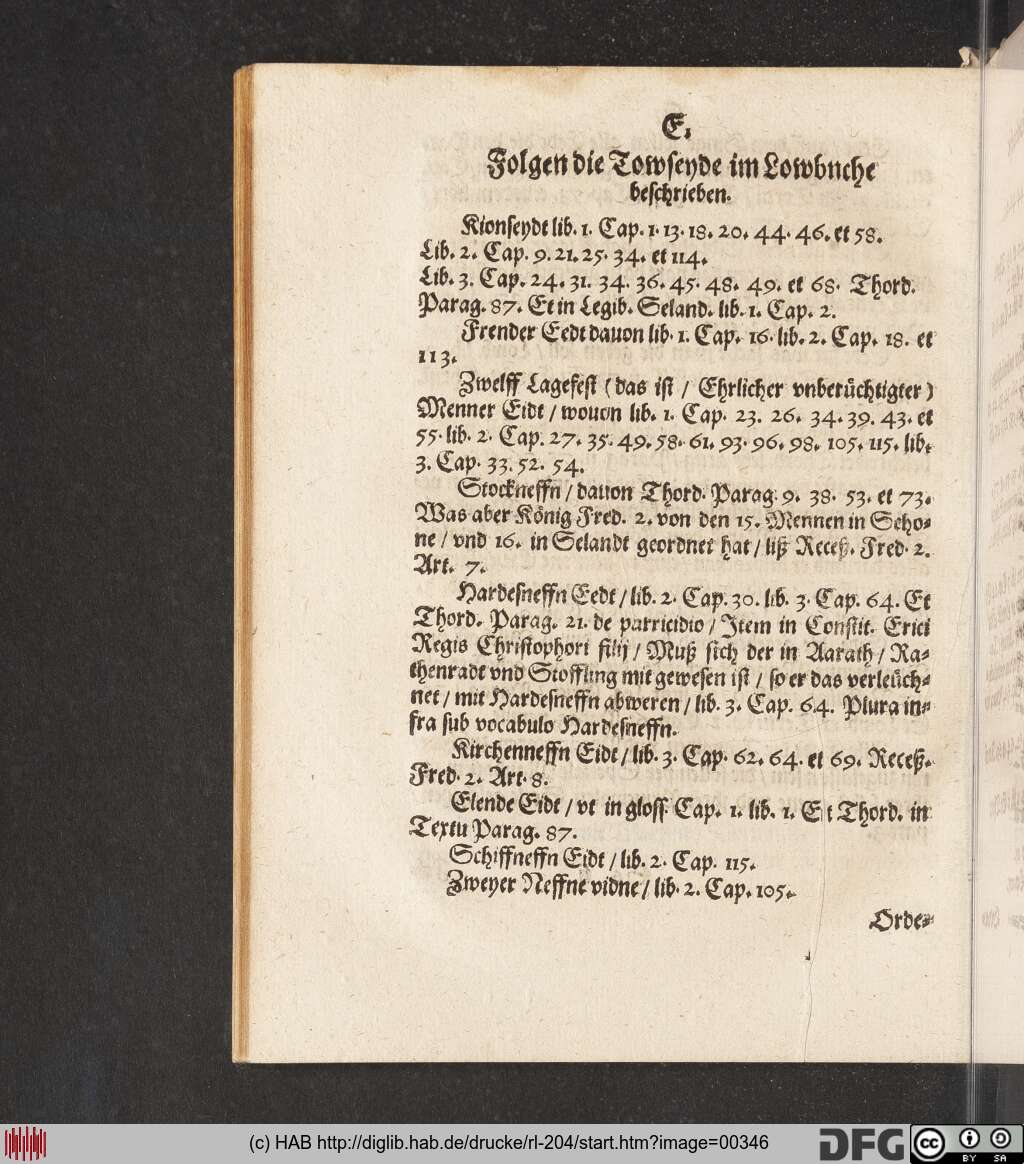 E.
Folgen die Towſeyde im Lowbnche
beſchrieben.
Kionſeydt lib. 1. Cap. 1. 13. 18. 20. 44. 46. et 58.
Lib. 2. Cap. 9. 21. 25. 34. et 114.
Lib. 3. Cap. 24. 31. 34. 36. 45. 48. 49. et 68. Thord.
Parag. 87. Et in Legib. Seland. lib. 1. Cap. 2.
Frender Eedt dauon lib. 1. Cap. 16. lib. 2. Cap. 18. et
113.
Zwelff Lagefeſt (das iſt / Ehrlicher vnberüchtigter)
Menner Eidt / wouon lib. 1. Cap. 23. 26. 34. 39. 43. et
55. lib. 2. Cap. 27. 35. 49. 58. 61. 93. 96. 98. 105. 115. lib.
3. Cap. 33. 52. 54.
Stockneffn / dauon Thord. Parag. 9. 38. 53. et 73.
Was aber König Fred. 2. von den 15. Mennen in Scho-
ne / vnd 16. in Selandt geordnet hat / liß Receß. Fred. 2.
Art. 7.
Hardeſneffn Eedt / lib. 2. Cap. 30. lib. 3. Cap. 64. Et
Thord. Parag. 21. de parricidio / Item in Conſtit. Erici
Regis Chriſtophori filij / Muß ſich der in Aarath / Ra-
thenradt vnd Stoffling mit geweſen iſt / ſo er das verleüch-
net / mit Hardeſneffn abweren / lib. 3. Cap. 64. Plura in-
fra ſub vocabulo Hardeſneffn.
Kirchenneffn Eidt / lib. 3. Cap. 62. 64. et 69. Receß.
Fred. 2. Art. 8.
Elende Eidt / vt in gloſſ. Cap. 1. lib. 1. Et Thord. in
Textu Parag. 87.
Schiffneffn Eidt / lib. 2. Cap. 115.
Zweyer Neffne vidne / lib. 2. Cap. 105.
Orde-
(c) HAB http://diglib.hab.de/drucke/rl-204/start.htm?image=00346
DFG
cc
BY SA